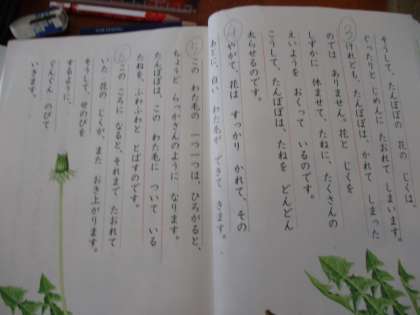 そうして、たんぽぽの 花の じくは、
ぐったりと じめんに たおれて しまいます。
③
けれども、たんぽぽは、かれて しまった
のでは ありません。花と じくを
しずかに 休ませて、たねに、たくさんの
えいようを おくって いるのです。
こうして、たんぽぽは、たねを どんどん
太らせるのです。
④
やがて、花は すっかり かれて、その
あとに、白い わた毛が できて きます。
⑤
この わた毛の 一つ一つは、ひろがると、
ちょうど らっかさんのように なります。
たんぽぽは、この わた毛に ついて いる
たねを、ふわふわと とばすのです。
⑥
この ころに なると、それまで たおれて
いた 花の じくが、また おき上がります。
そうして、せのびを
するように、
ぐんぐん のびて
いきます。